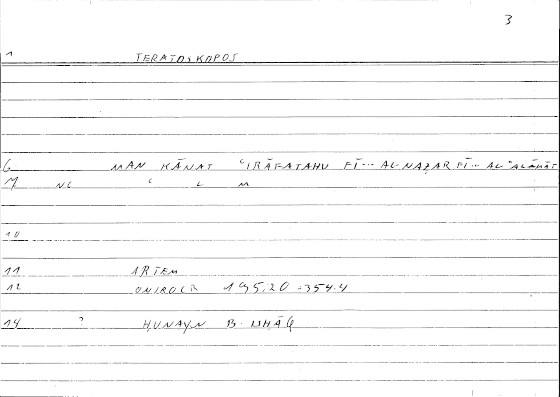 3
1 TERATOSKOPOS
6 MAN KĀNAT ʿIRĀFATAHU FĪ··· AL-NAẒAR FĪ··· AL-ʿALĀMĀT
7 NC ʿ L M
10
11 ARTEM
12 ONIROCR 195.20 = 354.4
14 ? ḤUNAYN B. ISḤĀQ